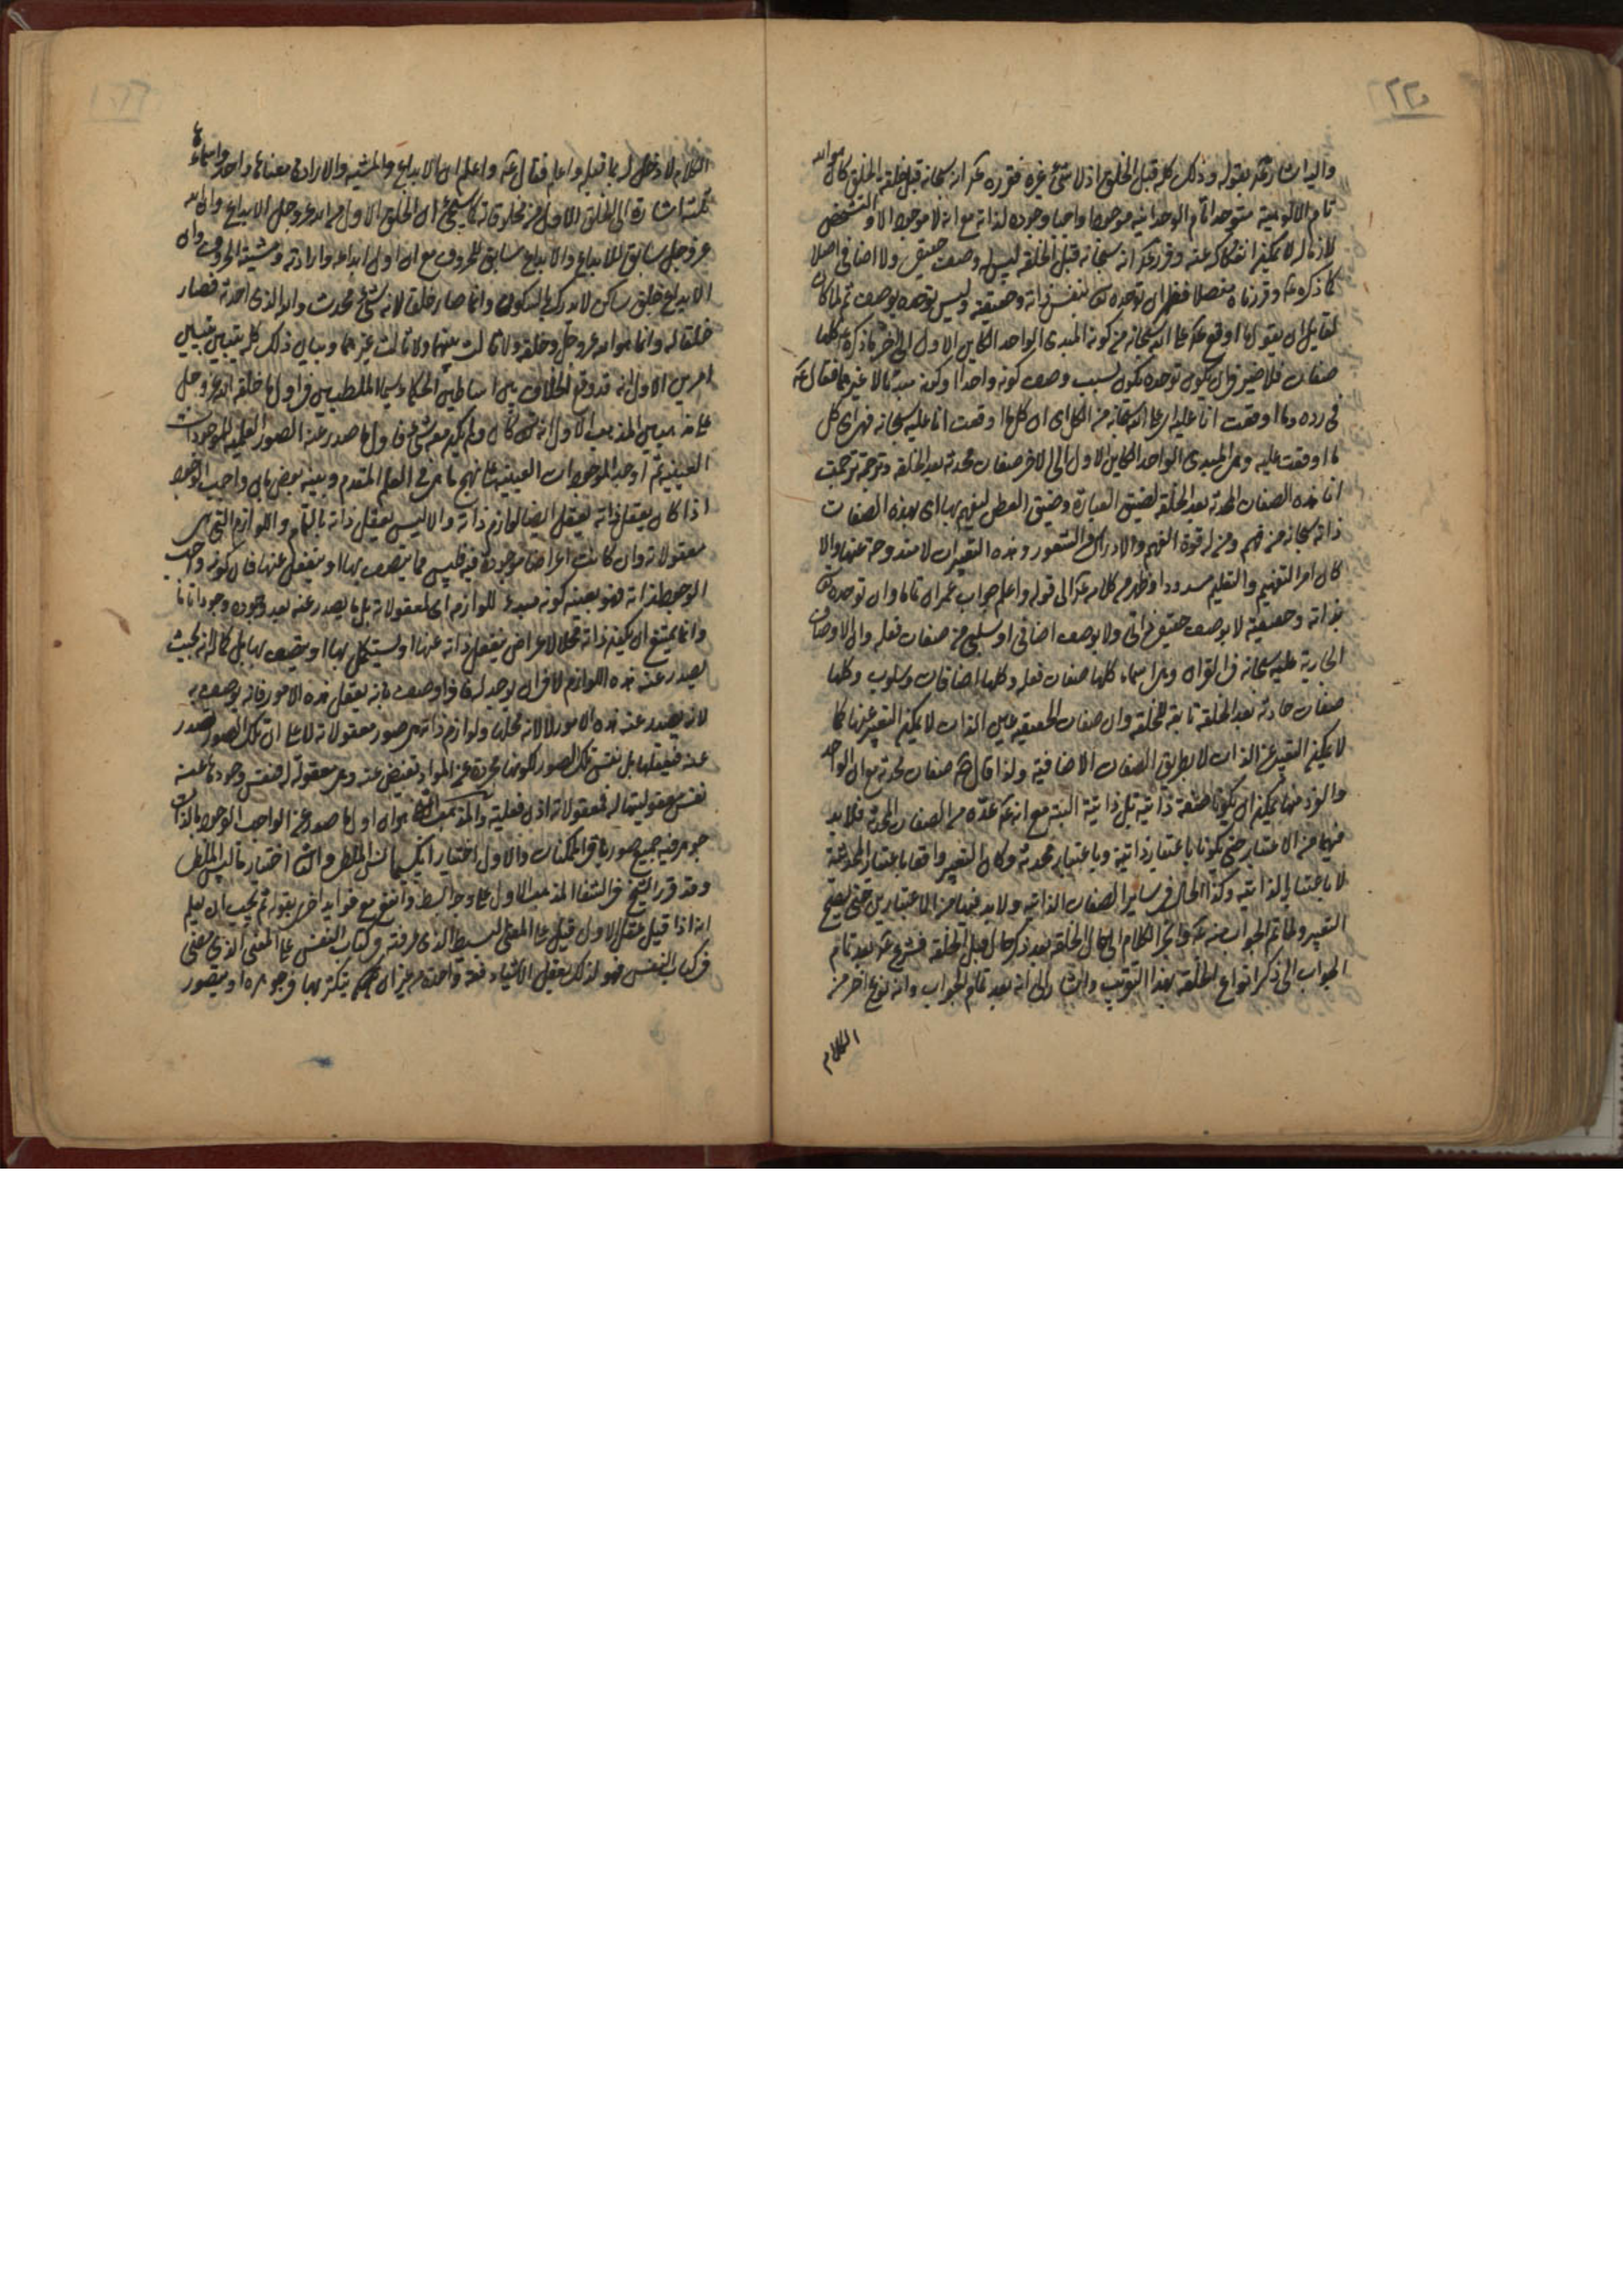 ٢٢٥
واليه اشار ع بقوله وذلك كله قبل الخلق اذ لا شئ غيره فقرره ع انه سبحانه قبل خلقه الخلق كان هو الله
تام الالوهية متوحدا تام الوحدانية موجودا واجبا وجوده لذاته مع انه لا موجود الا والتشخص
لازم له لا يمكن انفكاكه عنه وقرر ع انه سبحانه قبل الخلقة ليس له وصف حقيقى ولا اضافى اصلا
كما ذكره ع وقررناه مفصلا فظهر ان توحده بنفس ذاته وحقيقته وليس توحده بوصف ثم لما كان
لقايل ان يقول ما اوقع على الله سبحانه من كونه المبدى الواحد الكاين الاول الى اخر ما ذكره ع كلها
صفات فلا ضير فى ان يكون توحده يكون بسبب وصف كونه واحدا وكونه مبدئا لا غيرهما فقال ع
فى رده وما اوقعت انا عليه اى على الله سبحانه من الكل اى ان كل ما اوقعت انا عليه سبحانه فهو اى كل
ما اوقعت عليه وهى المبدى الواحد الكاين الاول الى الاخر صفات محدثة بعد الخلقة وترجمة ترجمت
انا هذه الصفات المحدثة بعد الخلقة لضيق العبارة وضيق العطن ليفهم بها اى بهذه الصفات
ذاته سبحانه من فهم ومن له قوة الفهم والادراك والشعور وهذه التعبيرات لا مندوحة عنها والا
كان امر التفهيم والتعليم مسدودا وظهر من كلامه ع الى قوله واعلم جواب عمران تاما وان توحده
بذاته وحقيقته لا بوصف حقيقى ذاتى ولا بوصف اضافى او سلبى من صفات فعله وان الاوصاف
الجارية عليه سبحانه فى القران وهى اسماء كلها صفات فعله وكلها اضافات وسلوب وكلها
صفات حادثة بعد الخلقة تابعة للخلقة وان صفات الحقيقية عين الذات لا يمكن التعبير عنها كما
لا يمكن التعبير عن الذات الا بطريق الصفات الاضافية ولذا قال ع صفات محدثة مع ان الواحد
والفرد منها يمكن ان يكونا صفة ذاتية بل ذاتية البتة مع انه ع عده من الصفات المحدثة فلا بد
فيهما من الاعتبار حتى يكونا باعتبار ذاتية وباعتبار محدثة وكان التعبير واقعا باعتبار المحدثية
لا باعتبار الذاتية وكذا الحال فى ساير الصفات الذاتية ولا بد فيها من الاعتبارين حتى يصح
التعبير ولما تم الجواب منه ع وانجر الكلام الى حال الخلقة بعد ذكر حال قبل الخلقة فشرع ع بعد تمام
الجواب الى ذكر انواع الخلقة بهذا التقريب واشار الى انه بعد تمام الجواب وانه نوع اخر من
الكلام
الكلام لا دخل له بما قبله واعلم فقال ع واعلم ان الابداع والمشية والارادة معناها واحد واسماءها
ثلثة اشارة الى الخلق الاول من مخلوقاته كما سيجئ ان الخلق الاول من الله عز وجل الابداع وان الله
عز وجل سابق للابداع والابداع سابق للحروف مع ان اول ابداعه وارادته ومشيته الحروف وان
الابداع خلق ساكن لا يدرك بالسكون وانما صار خلقا لانه شئ محدث والله الذى احدثه فصار
خلقا له وانما هو الله عز وجل وخلقه ولا ثالث بينهما ولا ثالث غيرهما وبيان ذلك كله يتبين بتبيين
امرين الاول انه قد وقع الخلاف بين اساطين الحكماء وسيما الملطيين فى اول ما خلقه الله عز وجل
على مذهبين المذهب الاول انه كان ولم يكن معه شئ فاول ما صدر عنه الصور العلمية للموجودات
العينية ثم اوجد الموجودات العينية على نهج ما هى فى العلم المقدم وبينه بعض بان واجب الوجود
اذا كان يعقل ذاته يعقل ايضا لوازم ذاته والا ليس يعقل ذاته بالتمام واللوازم التى هى
معقولاته وان كانت اعراضا موجودة فيه فليس مما يتصف بها او ينفعل عنها فان كونه واجب
الوجود لذاته فهو بعينه كونه مبدء للوازمه اى لمعقولاته بل ما يصدر عنه بعد وجوده وجودا تاما
وانما يمتنع ان يكون ذاته محلا لاعراض ينفعل ذاته عنها او يستكمل بها او يتصف بها بل كماله انه بحيث
يصدر عنه هذه اللوازم لا فى ان يوجد له فاذا وصف بانه يعقل هذه الامور فانه يوصف به
لانه يصدر عنه هذه الامور لا لانه محلها ولوازم ذاته هى صور معقولاته لا على ان تلك الصور تصدر
عنه فيعقلها بل نفس تلك الصور لكونها مجردة عن المواد تفيض عنه وهى معقولة له فنفس وجودها عنه
نفس معقوليتها له فمعقولاته اذن فعلية والمذهب الثانى هو ان اول ما صدر عن الواجب الوجود بالذات
جوهر فيه جميع صور باقى الممكنات والاول اختيار انكسيمانس الملطى والثانى اختيار ثاليس الملطى
وقد قرر الشيخ فى الشفا المذهب الاول على وجه البسط وانفع مع فوايد اخر بقوله ثم يجب ان يعلم
انه اذا قيل عقل للاول قيل على المعنى البسيط الذى عرفته فى كتاب النفس على المعنى الذى مضى
فى كتاب النفس فهو لذلك يعقل الاشياء دفعة واحدة من غير ان يتكثر بها فى جوهره او يتصور